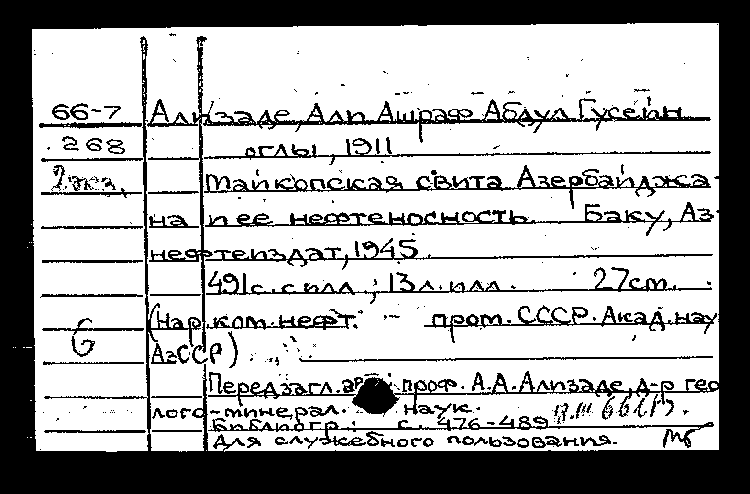 66-7 Ализаде, Али Ашраф Абдул Гусейн
268 оглы, 1911
2 экз. Майкопская свита Азербайджа-
на и ее нефтеносность. Баку, Аз-
нефтеиздат, 1945.
491 с. с илл.; 13 л. илл. 27 см.
(Нар. ком. нефт. - пром. СССР. Акад. нау
АзССР)
Перед загл. авт: проф. А.А. Ализаде, д-р гео
лого-минерал. наук.
Библиогр.: с. 476-489
Для служебного пользования.